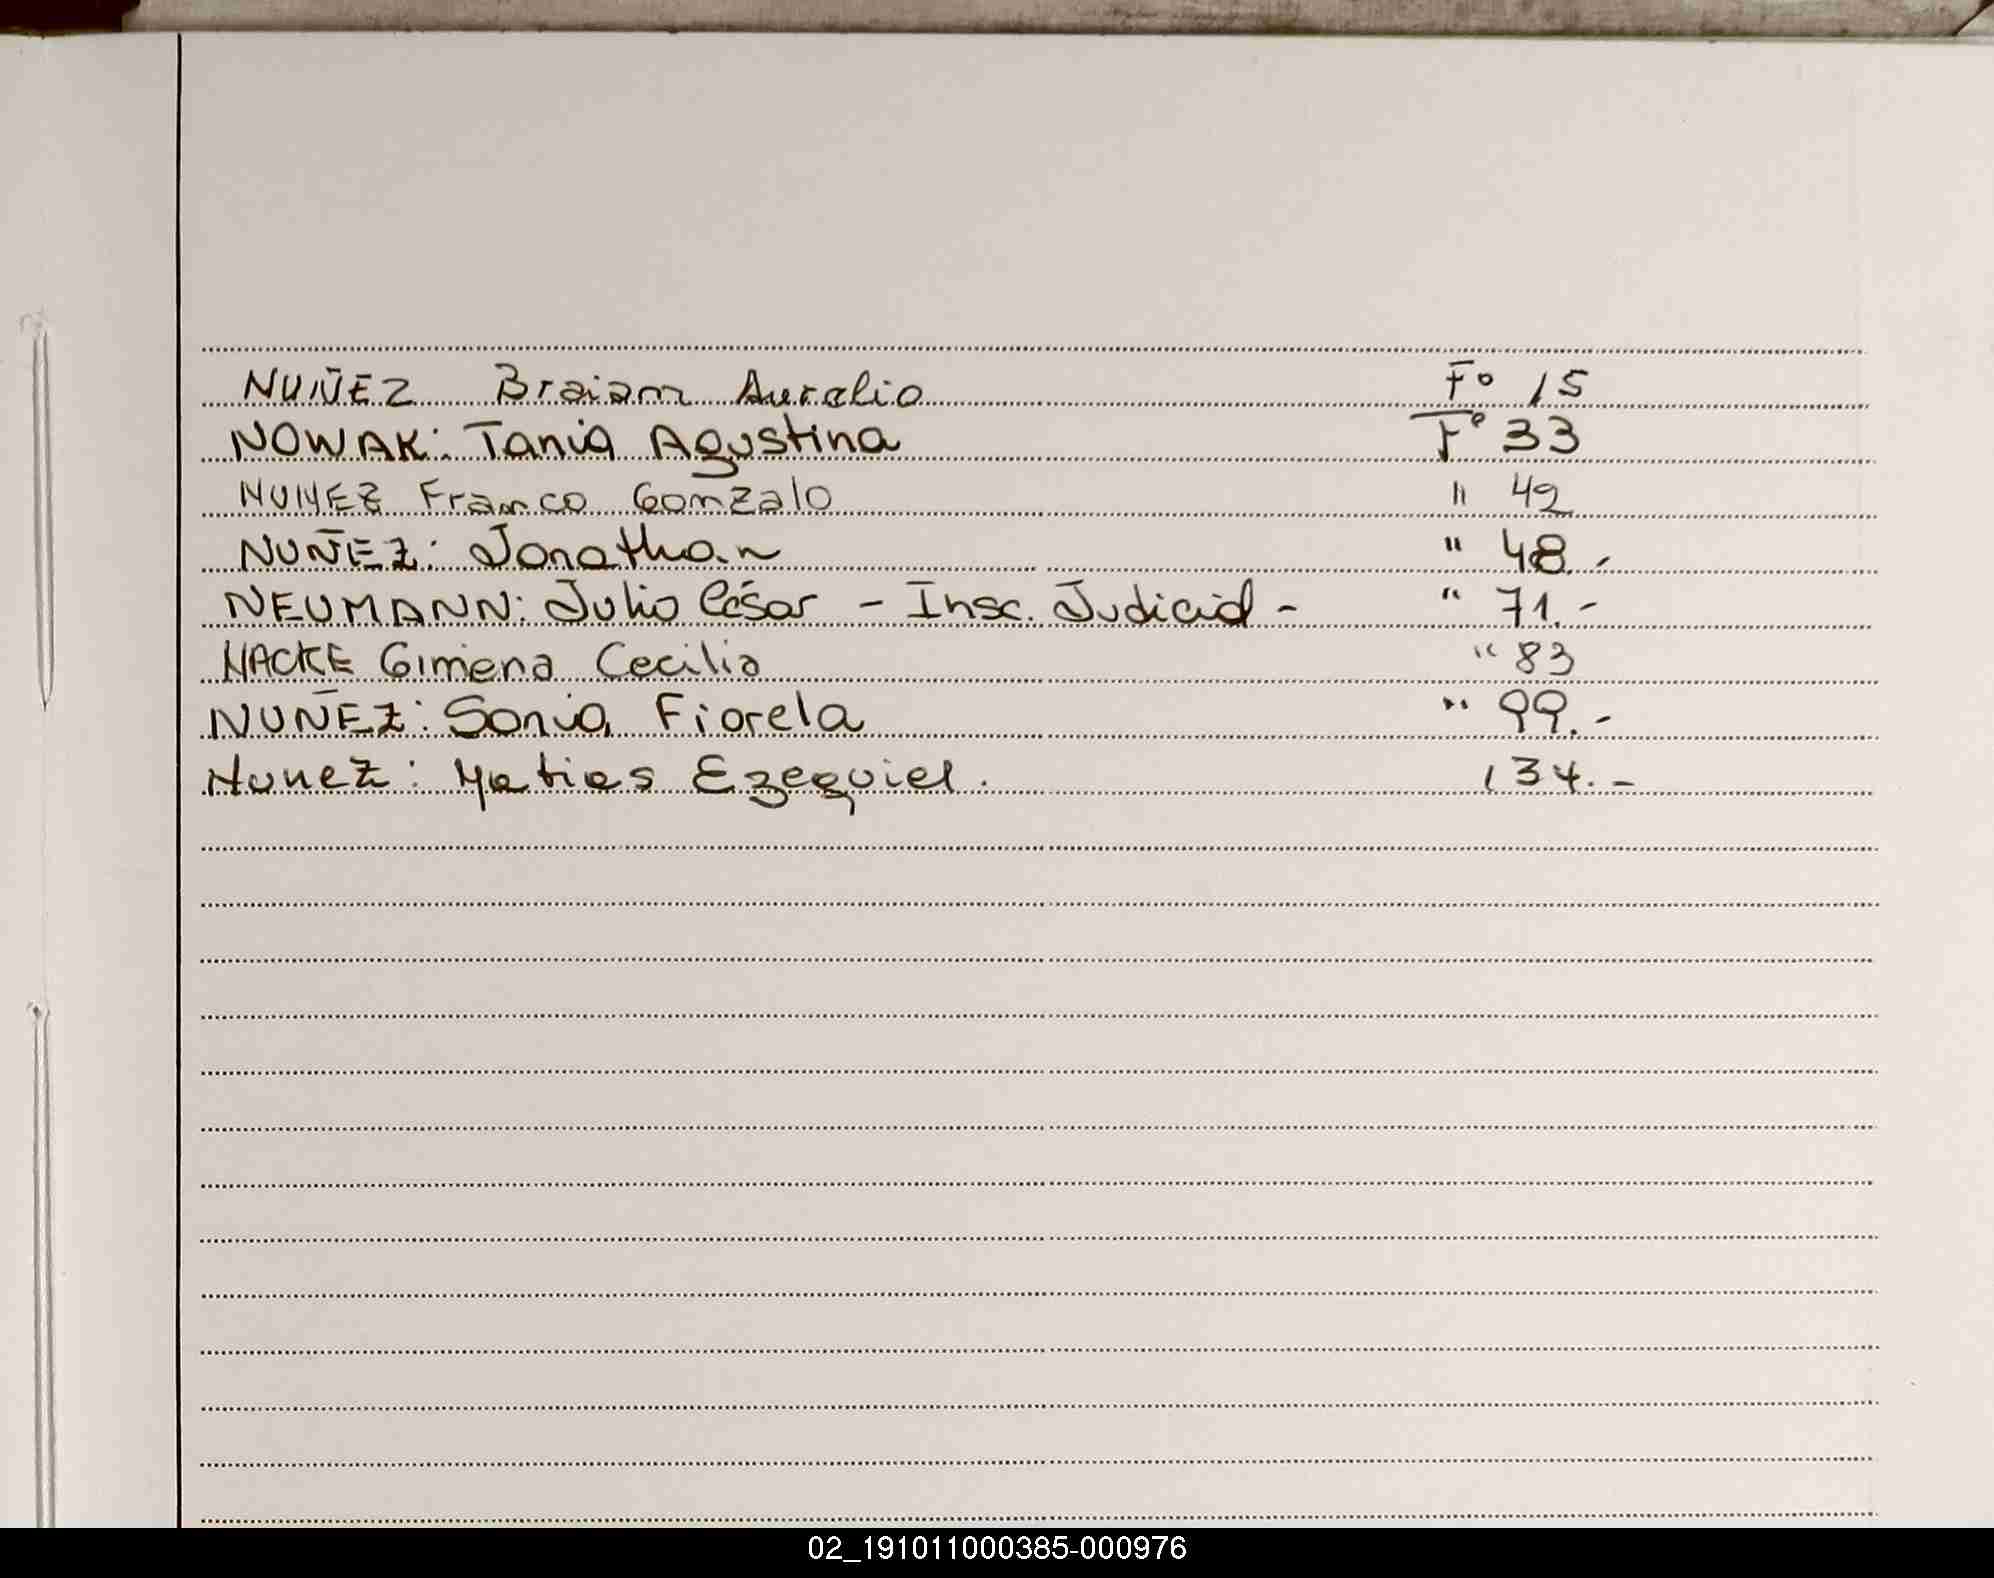 NUÑEZ Braian Aurelio F° 15
NOWAK: Tania Agustina F° 33
NUNEZ Franco Gonzalo " 42
NUÑEZ: Jonathan " 48.-
NEUMANN: Julio César - Insc. Judicial - " 71.-
NACKE Gimena Cecilia " 83
NUÑEZ: Sonia Fiorela " 99.-
Nunez: Matias Ezequiel. 134.-
02_191011000385-000976